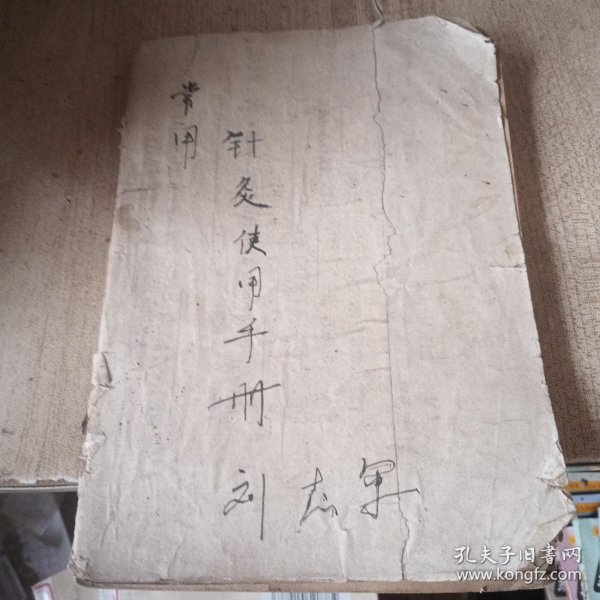 常用
针灸使用手册
刘志军
孔夫子旧书网
www.kongfz.com